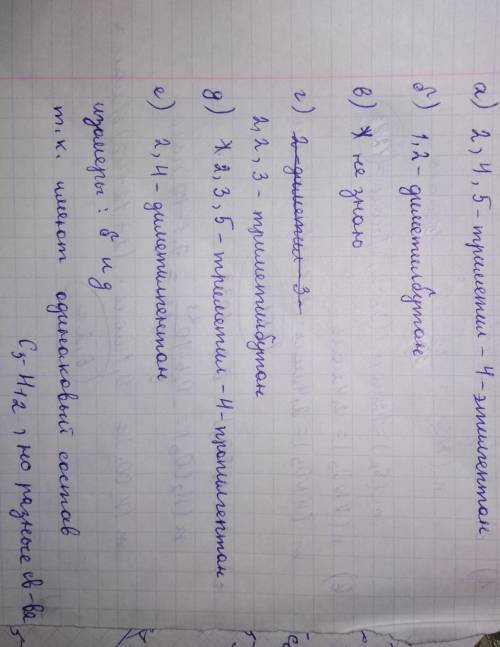 а) 2, 4, 5 - триметил - 4 - этилгептан
б) 1, 2 - диметилбутан
в) не знаю
г) 2-диметил-3-
2, 2, 3 - триметилбутан
д) 2, 3, 5 - триметил - 4 - пропилгептан.
е) 2, 4 - диметилпентан
изомеры: б и д
т.к. имеют одинаковый состав
C5H12, но разные св-ва